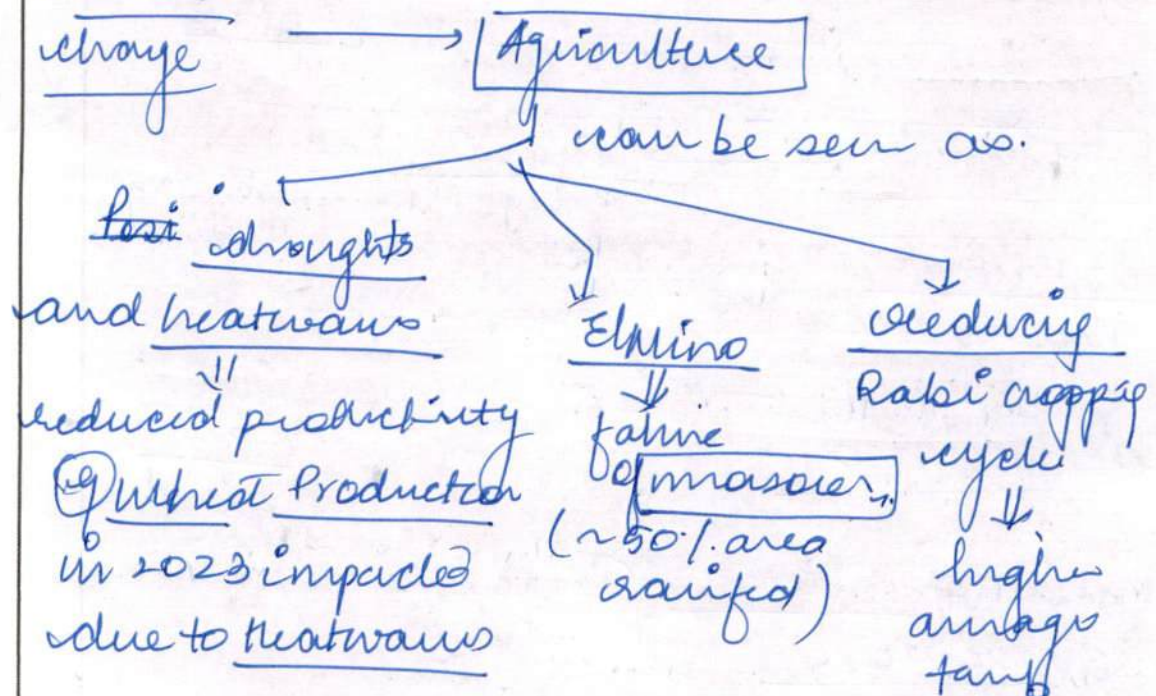 change → Agriculture
can be seen as.
droughts
and heatwaves
⇓
reduced productivity
eg Wheat Production
in 2023 impacted
due to heatwaves
El Nino
⇓
failure
of monsoon
(~50% area
rainfed)
reducing
Rabi cropping
cycle
⇓
higher
average
temp